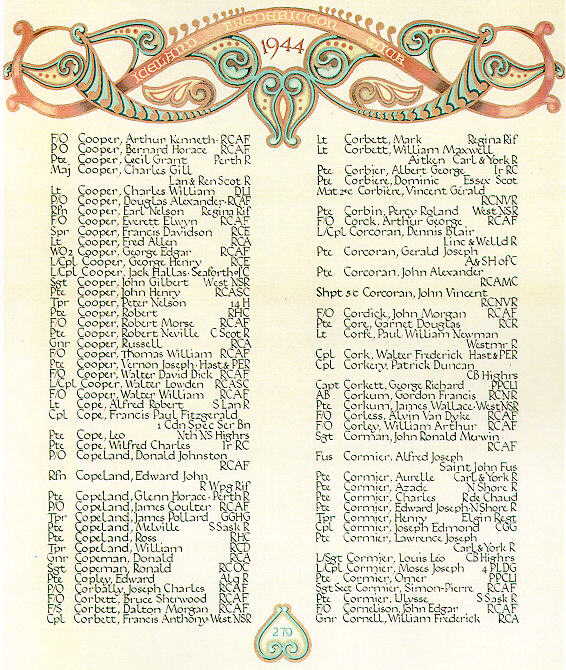 ICELAND FREDERICTON WAR
1944
F/O Cooper, Arthur Kenneth - RCAF
P/O Cooper, Bernard Horace RCAF
Pte Cooper, Cecil Grant Perth R
Maj Cooper, Charles Gill
Lan & Ren Scot R
Lt Cooper, Charles William DLI
P/O Cooper, Douglas Alexander - RCAF
Rfn Cooper, Earl Nelson Regina Rif
F/O Cooper, Everett Elwyn RCAF
Spr Cooper, Francis Davidson RCE
Lt Cooper, Fred Allen RCA
WO2 Cooper, George Edgar RCAF
L/Cpl Cooper, George Henry RCE
L/Cpl Cooper, Jack Hallas - Seaforth of C
Sgt Cooper, John Gilbert West NSR
Pte Cooper, John Henry RCASC
Tpr Cooper, Peter Nelson 14 H
Pte Cooper, Robert RHC
F/O Cooper, Robert Morse RCAF
Pte Cooper, Robert Neville C Scot R
Gnr Cooper, Russell RCA
F/O Cooper, Thomas William RCAF
Pte Cooper, Vernon Joseph - Hast & PER
F/O Cooper, Walter David Dick RCAF
L/Cpl Cooper, Walter Lowden RCASC
F/O Cooper, Walter William RCAF
Lt Cope, Alfred Robert S Lan R
Cpl Cope, Francis Paul Fitzgerald
1 Cdn Spec Ser Bn
Pte Cope, Leo Nth NS Highrs
Pte Cope, Wilfred Charles Ir RC
P/O Copeland, Donald Johnston
RCAF
Rfn Copeland, Edward John
R Wpg Rif
Pte Copeland, Glenn Horace - Perth R
P/O Copeland, James Coulter RCAF
Tpr Copeland, James Pollard GGHG
Pte Copeland, Melville S Sask R
Pte Copeland, Ross RHC
Tpr Copeland, William RCD
Gnr Copeman, Donald RCA
Sgt Copeman, Ronald RCOC
Pte Copley, Edward Alq R
P/O Corbally, Joseph Charles RCAF
F/O Corbett, Bruce Sherwood RCAF
F/S Corbett, Dalton Morgan RCAF
Cpl Corbett, Francis Anthony West NSR
Lt Corbett, Mark Regina Rif
Lt Corbett, William Maxwell
Aitken Carl & York R
Pte Corbier, Albert George Ir RC
Pte Corbiere, Dominic Essex Scot
Mat 2/c Corbiere, Vincent Gérald
RCNVR
Pte Corbin, Percy Roland West NSR
F/O Corck, Arthur George RCAF
L/Cpl Corcoran, Dennis Blair
Linc & Welld R
Pte Corcoran, Gerald Joseph
A & SH of C
Pte Corcoran, John Alexander
RCAMC
Shpt 5/c Corcoran, John Vincent
RCNVR
F/O Cordick, John Morgan RCAF
Pte Core, Garnet Douglas RCR
Lt Cork, Paul William Newman
Westmr R
Cpl Cork, Walter Frederick Hast & PER
Cpl Corkery, Patrick Duncan
CB Highrs
Capt Corkett, George Richard PPCLI
AB Corkum, Gordon Francis RCNR
Pte Corkum, James Wallace - West NSR
F/O Corless, Alvin Van Dyke RCAF
F/O Corley, William Arthur RCAF
Sgt Corman, John Ronald Merwin
RCAF
Fus Cormier, Alfred Joseph
Saint John Fus
Pte Cormier, Aurelle Carl & York R
Pte Cormier, Azade N Shore R
Pte Cormier, Charles R de Chaud
Pte Cormier, Edward Joseph - N Shore R
Tpr Cormier, Henry Elgin Regt
Cpl Cormier, Joseph Edmond CGG
Pte Cormier, Lawrence Joseph
Carl & York R
L/Sgt Cormier, Louis Léo CB Highrs
L/Cpl Cormier, Moses Joseph 4 PLDG
Pte Cormier, Omer PPCLI
Sgt Sect Cormier, Simon-Pierre RCAF
Pte Cormier, Ulysse S Sask R
F/O Cornelison, John Edgar RCAF
Gnr Cornell, William Frederick RCA
279